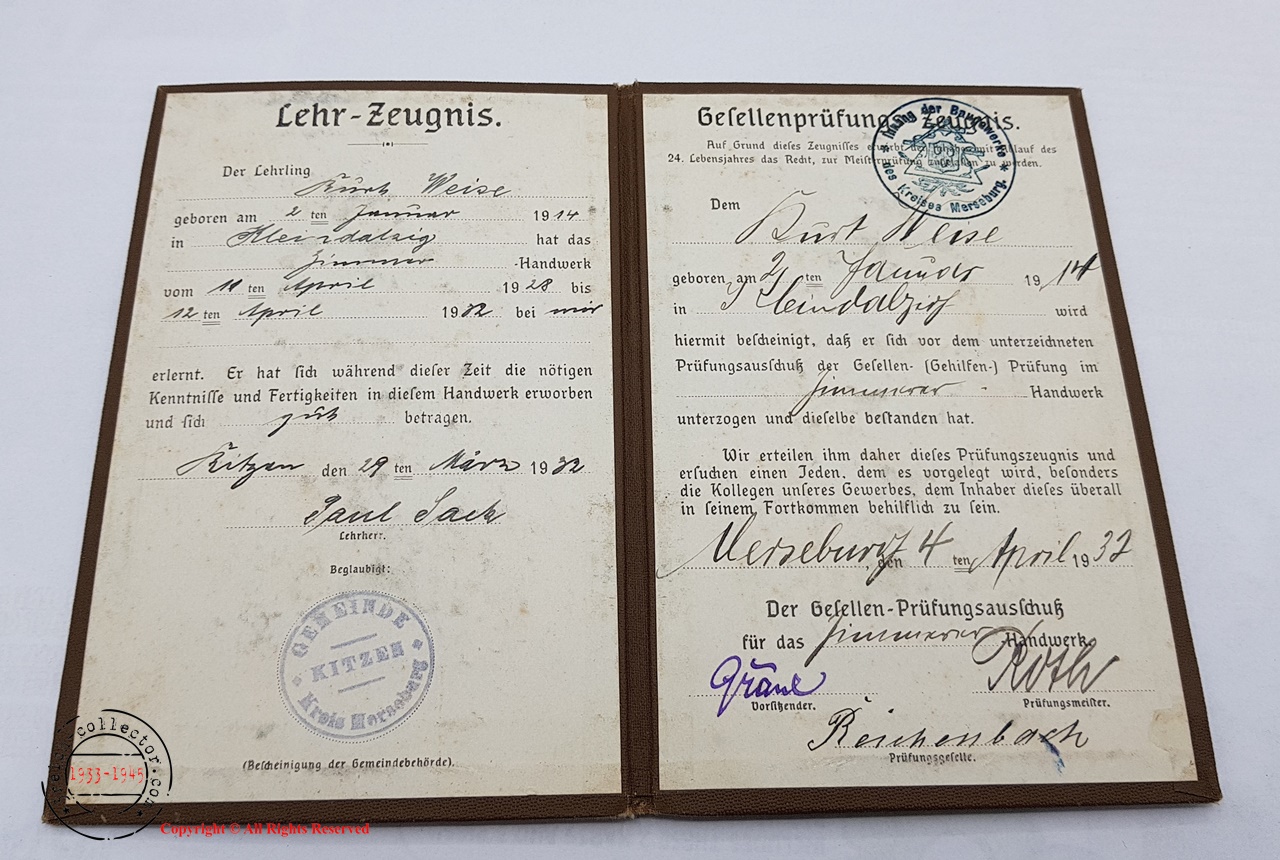 Lehr-Zeugnis.
Der Lehrling
Kurt Weise
geboren am 2 ten Januar 1914
in Kleindalzig hat das
Zimmer -Handwerk
vom 11 ten April 1928 bis
12 ten April 1932 bei mir
erlernt. Er hat sich während dieser Zeit die nötigen
Kenntnisse und Fertigkeiten in diesem Handwerk erworben
und sich gut betragen.
Kitzen den 29 ten März 1932
Paul Sack
Lehrherr.
Beglaubigt:
GEMEINDE
KITZEN
Kreis Merseburg
(Bescheinigung der Gemeindebehörde).
Gesellenprüfungs-Zeugnis.
Auf Grund dieses Zeugnisses erwirbt der Inhaber mit Ablauf des
24. Lebensjahres das Recht, zur Meisterprüfung zugelassen zu werden.
Innung der Baugewerke
des Kreises Merseburg.
Dem
Kurt Weise
geboren am 2 ten Januar 1914
in Kleindalzig wird
hiermit bescheinigt, daß er sich vor dem unterzeichneten
Prüfungsausschuß der Gesellen- (Gehilfen-) Prüfung im
Zimmerer - Handwerk
unterzogen und dieselbe bestanden hat.
Wir erteilen ihm daher dieses Prüfungszeugnis und
ersuchen einen Jeden, dem es vorgelegt wird, besonders
die Kollegen unseres Gewerbes, dem Inhaber dieses überall
in seinem Fortkommen behilflich zu sein.
Merseburg, den 4 ten April 1932
Der Gesellen-Prüfungsausschuß
für das Zimmerer -Handwerk.
Roth
Vorsitzender.
Prüfungsmeister.
Reichenbach
Prüfungsgeselle.
collector.com
1933-1945
Copyright © All Rights Reserved